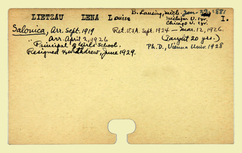 LIETZAU LENA Louise
B. Lansing, Mich. Jan. 1881
Michigan U. 
Chicago U. 
I.
Salonica, Arr. Sept. 1919
Ret. U.S.A. Sept. 1924 — Mar. 12, 1926.
" Arr. April 2, 1926
(Taught 20 yrs.)
" Principal of Girls' School.
Ph.D., Vienna Univ. 1928
Resigned withdrew, June 1929.